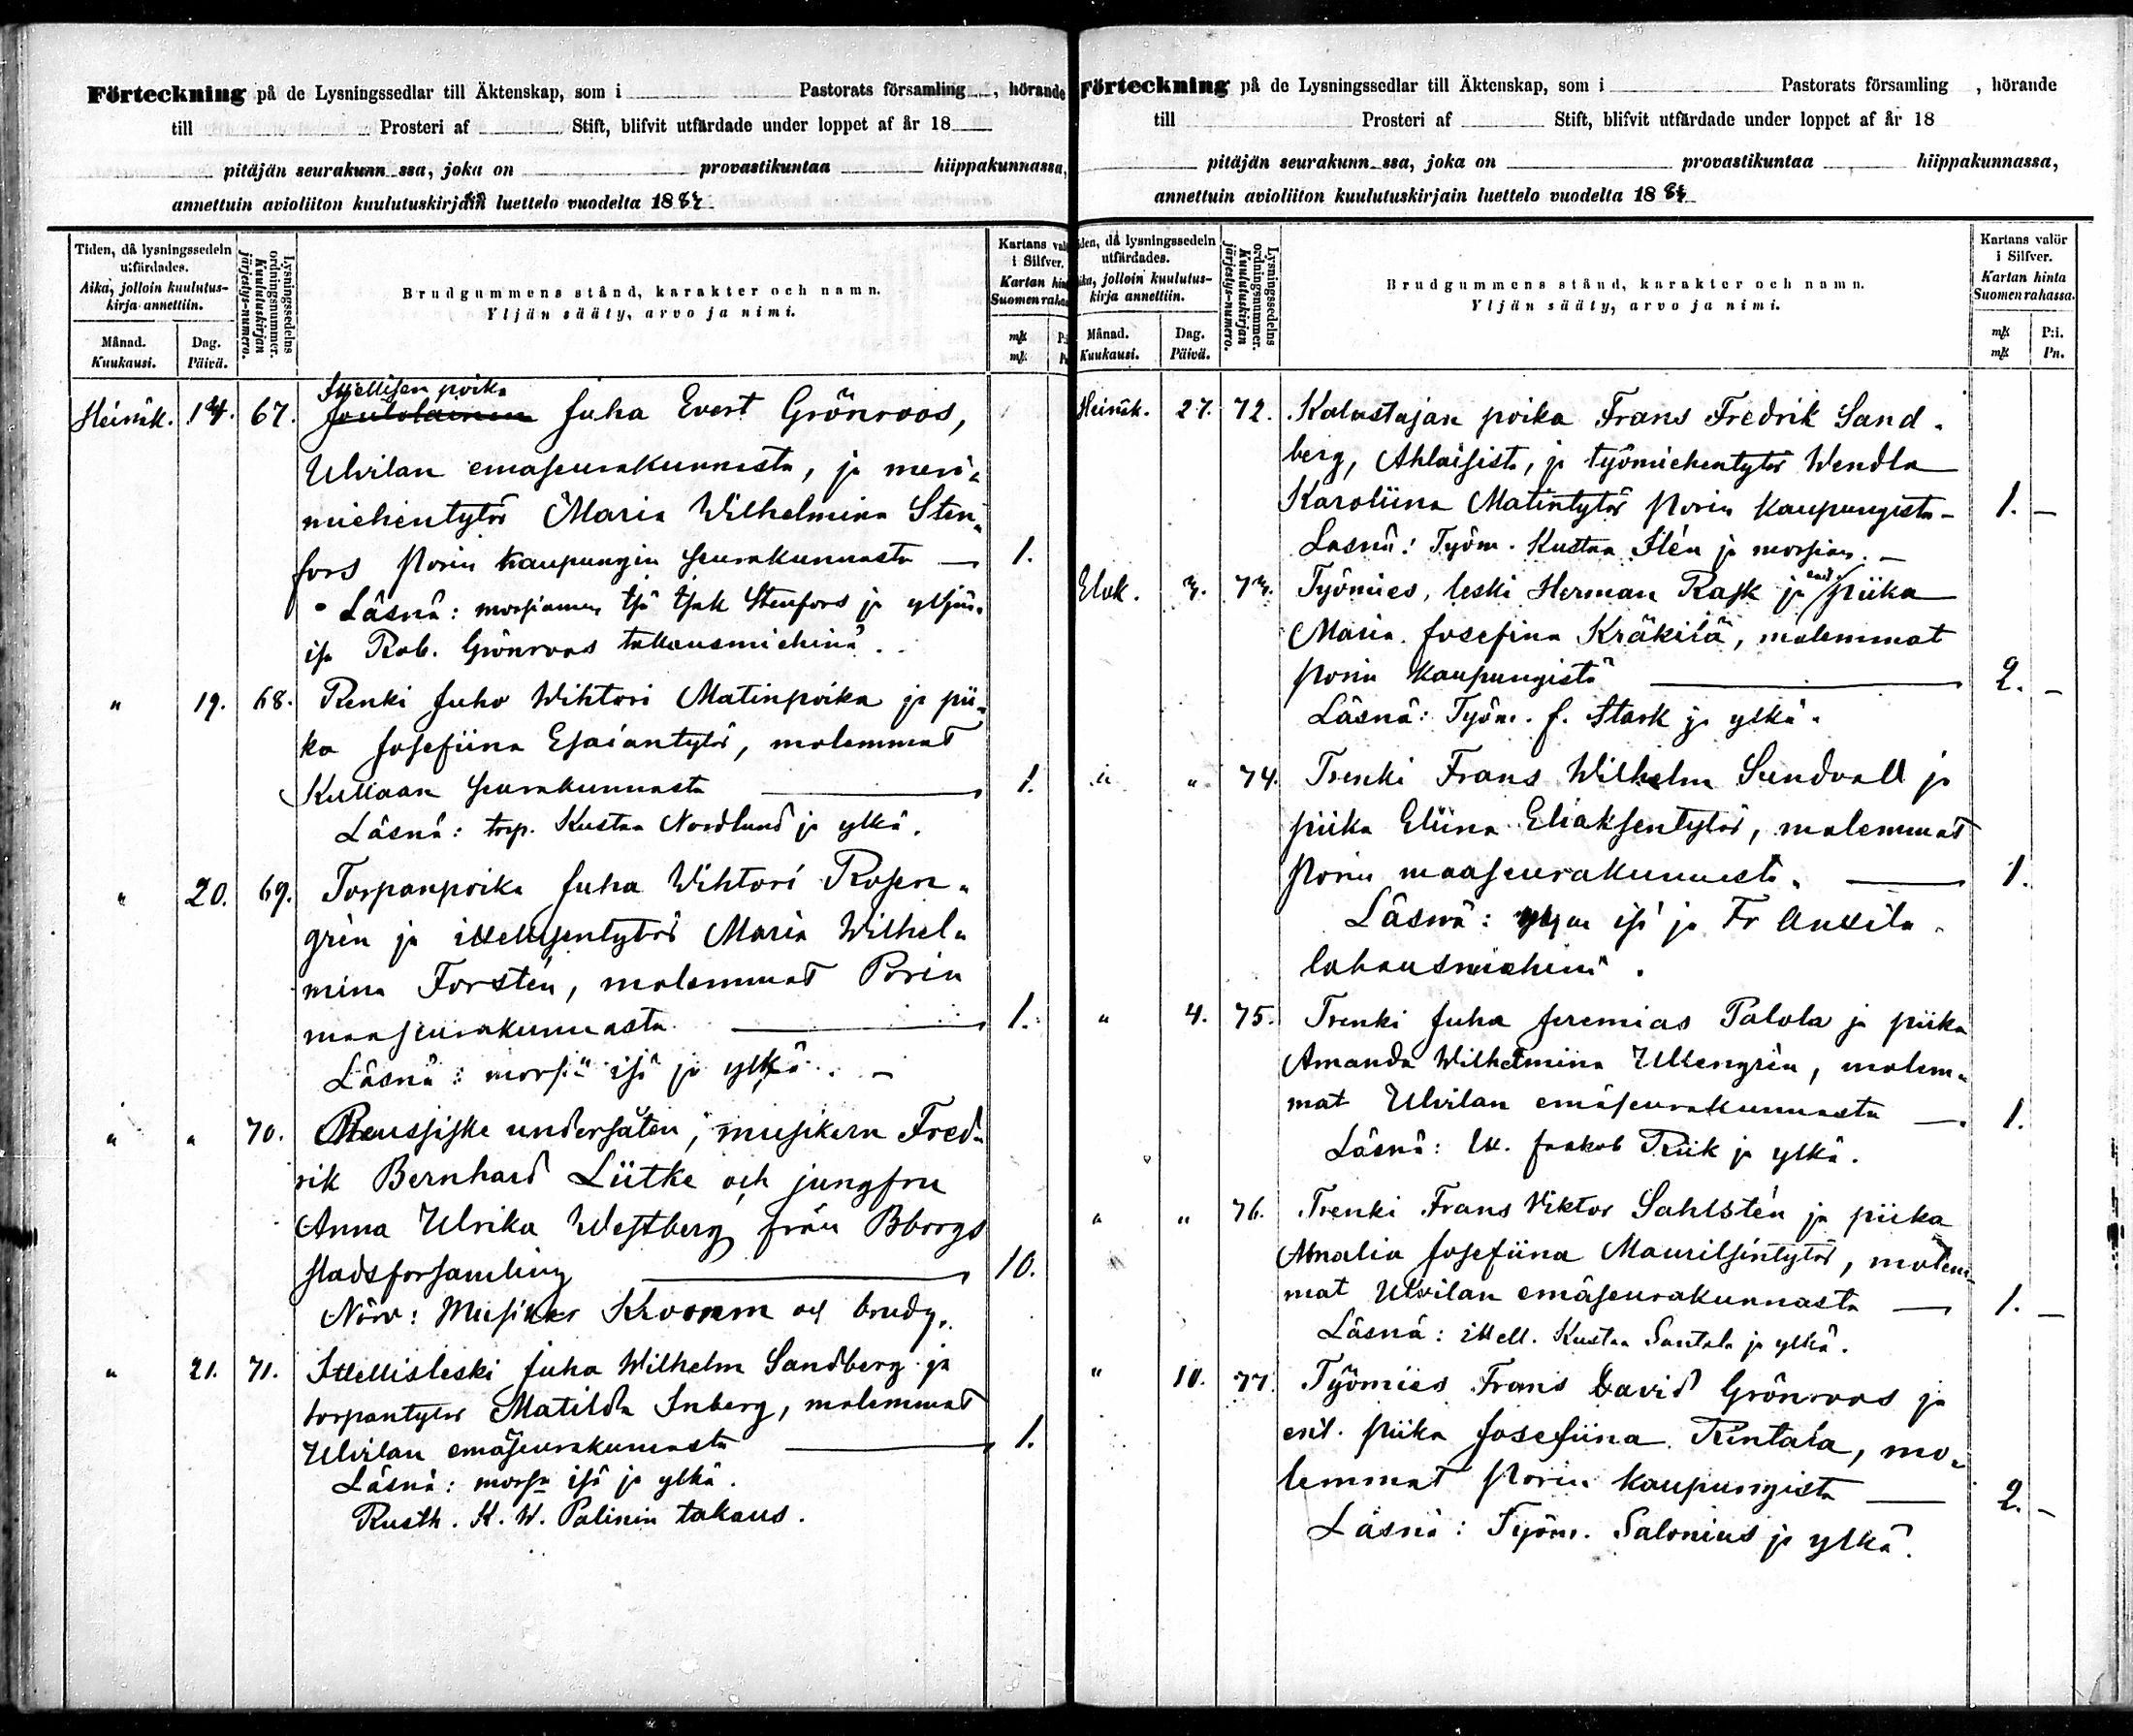 Förteckning på de Lysningssedlar till Äktenskap, som i Pastorats församling , hörande
till Prosteri af Stift, blifvit utfärdade under loppet af år 18
pitäjän seurakunn ssa, joka on provastikuntaa hiippakunnassa,
annettuin avioliiton kuulutuskirjain luettelo vuodelta 188
Tiden, då lysningssedeln utfärdades.
Aika, jolloin kuulutuskirja annettiin.
Månad. Kuukausi.
Dag. Päivä.
Lysningssedelns ordningsnummer.
Kuulutuskirjan järjestys-numero.
Brudgummens stånd, karakter och namn.
Yljän sääty, arvo ja nimi.
Kartans
i Silfver.
Kartan
Suomen
Itsellisen poika
Heinäk. 67. Juha Evert Grönroos,
Ulvilan emäseurakunnasta, ja meri-
miehentytär Maria Wilhelmina Sten-
fors Porin kaupungin seurakunnasta — 1.
Läsnä: morsiamen Stenfors ja
isä Rob. Grönroos
" 19. 68. Renki Juho Wihtori Matinpoika ja pii-
ka Josefiina Esaiantytär, molemmat
Kullaan seurakunnasta — 1.
Läsnä: torp. Kustaa Nordlund ja ylkä.
" 20. 69. Torpanpoika Juha Wihtori Rosen-
grén ja itsellisentytär Maria Wilhel-
mina Forstén, molemmat Porin
maaseurakunnasta — 1.
Läsnä: mors:n isä ja ylkä. —
" " 70. Preussiske undersåten, musikern Fred-
rik Bernhard Lütke och jungfru
Anna Ulrika Westberg från Bborgs
stadsförsamling — 10.
Närv: Musiker och brudg.
" 21. 71. Itsellisleski Juha Wilhelm Sandberg ja
torpantytär Matilda Inberg, molemmat
Ulvilan emäseurakunnasta — 1.
Läsnä: mors:n isä ja ylkä.
Rusth. K. W. Palinin takaus.
Förteckning på de Lysningssedlar till Äktenskap, som i Pastorats församling , hörande
till Prosteri af Stift, blifvit utfärdade under loppet af år 18
pitäjän seurakunn ssa, joka on provastikuntaa hiippakunnassa,
annettuin avioliiton kuulutuskirjain luettelo vuodelta 188
då lysningssedeln utfärdades.
jolloin kuulutuskirja annettiin.
Månad. Kuukausi.
Dag. Päivä.
Lysningssedelns ordningsnummer.
Kuulutuskirjan järjestys-numero.
Brudgummens stånd, karakter och namn.
Yljän sääty, arvo ja nimi.
Kartans valör
i Silfver.
Kartan hinta
Suomen rahassa.
mk P:i.
mk Pn.
Heinäk. 27. 72. Kalastajan poika Frans Fredrik Sand-
berg, Ahlaisista, ja työmiehentytär Wendla
Karoliina Matintytär Porin kaupungista — 1. —
Läsnä: Työm. Kustaa Itén ja morsian. —
Elok. 3. 73. Työmies, leski Herman Rask ja piika
Maria Josefina Kräkilä, molemmat
Porin kaupungista — 2. —
Läsnä: Työm. J. Stark ja ylkä.
" " 74. Trenki Frans Wilhelm Sundvall ja
piika Eliina Eliaksentytär, molemmat
Porin maaseurakunnasta. — 1.
Läsnä: isä ja Fr Anttila
" 4. 75. Trenki Juha Jeremias Palola ja piika
Amanda Wilhelmina Ullengrén, molem-
mat Ulvilan emäseurakunnasta — 1.
Läsnä: Jaakob Riik ja ylkä.
" " 76. Trenki Frans Viktor Sahlstén ja piika
Amalia Josefiina Mauritsintytär, molem-
mat Ulvilan emäseurakunnasta — 1. —
Läsnä: itsell. Kustaa Santala ja ylkä.
" 10. 77. Työmies Frans David Grönroos ja
ent. piika Josefiina Rintala, mo-
lemmat Porin kaupungista — 2. —
Läsnä: Työm. Salonius ja ylkä.